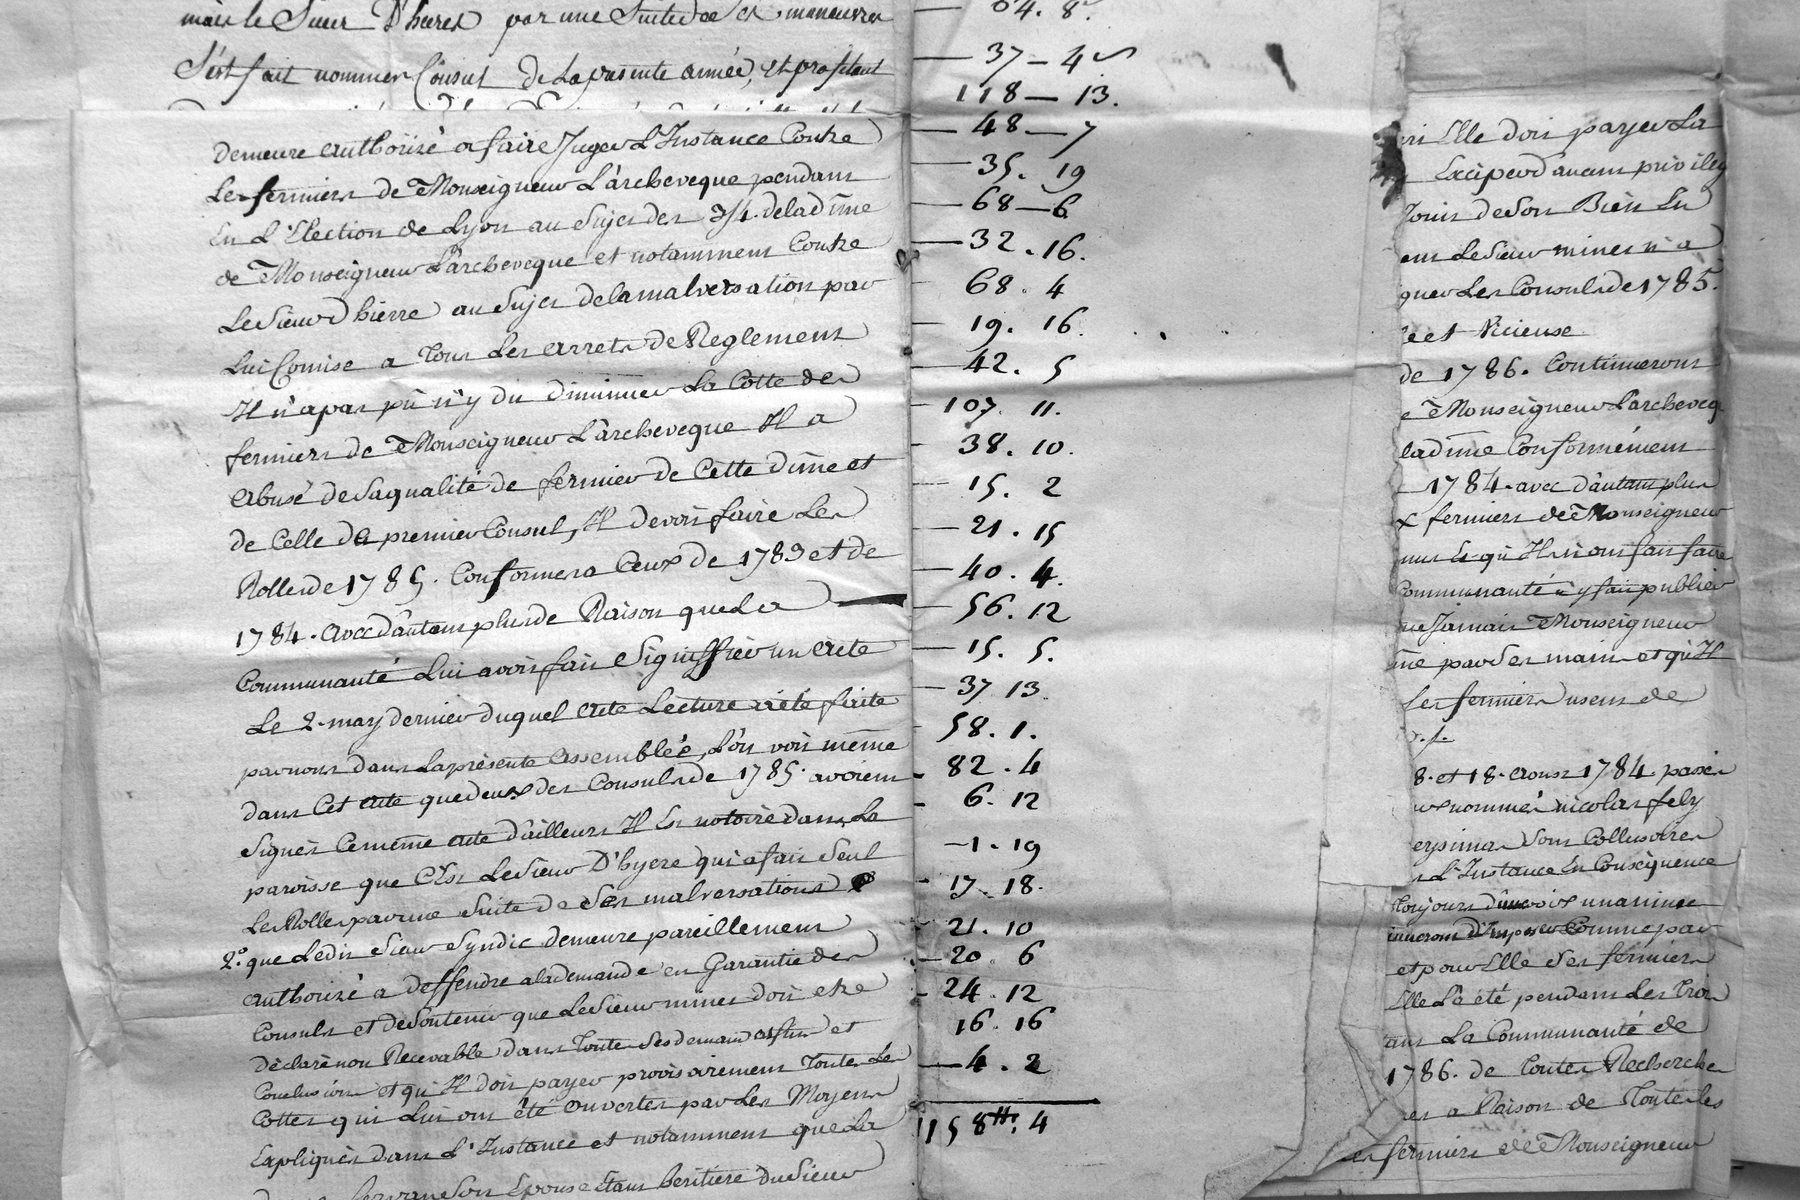 mais le Sieur D'hieres par une Suitte de Ses manœuvres
S'est fait nommer Consul De La presente année, et profitant
demeure authorizé a faire Juger L'Instance Contre
Les fermiers de Monseigneur L'archeveque pendant
En L'Election de Lyon au Sujet des 3/4. de la dime
de Monseigneur L'archeveque et notamment Contre
Le Sieur Dhierre au Sujet de la malversation par
Lui Comise a Tous Les arrets de Reglement
Il n'a pas pû n'y du Diminuer La Cotte des
fermiers de Monseigneur L'archeveque Il a
abusé de Sa qualité de fermier de Cette dime et
de Celle de premier Consul, Il devoit faire Les
Rolles de 1785. Conforme a Ceux de 1783 et de
1784. avec d'autant plus de Raison que La
Communauté Lui avoit fait Signiffier un acte
Le 2. may dernier duquel acte Lecture a été faite
par nous dans La présente assemblée, L'on voit même
dans Cet acte que deux des Consuls de 1785. avoient
Signés Ce même acte d'ailleurs Il Est notoire dans La
paroisse que C'Est Le Sieur D'hyere qui a fait Seul
Les Rolles par une Suite de Ses malversations
2.° que Ledit Sieur Syndic demeure pareillement
authorizé a deffendre a la demande en Garantie des
Consuls et de Soutenir que Le Sieur minet doit etre
déclaré non Recevable dans Toutes Ses demandes fins et
Conclusions et qu'Il doit payer provisoirement Toutes Les
Cottes qui Lui ont été ouvertes par Les Moyens
Expliqués dans L'Instance et notamment que La
Son Epouse Etant heritiere du Sieur
64. 8.
37 - 4
118 - 13.
48 - 7
35. 19
68 - 6
32. 16.
68. 4
19. 16.
42. 5
107. 11.
38. 10.
15. 2
21. 15
40. 4.
56. 12
15. 5.
37. 13.
58. 1.
82. 4
6. 12
1. 19
17. 18.
21. 10
20. 6
24. 12
16. 16
4. 2
1158tt. 4
Elle doit payer La
Exciper d'aucun privileg
Jouir de Son Bien En
Le Sieur minet n'a
Les Consuls de 1785.
et Vicieuse
de 1786. Continueront
Monseigneur L'archeveq
la dime Conformément
1784. avec d'autant plus
fermiers de Monseigneur
qu'Il n'ont fait faire
Communauté n'y fait publier
Jamais Monseigneur
par Ses mains et qu'Il
Les fermiers usent de
8. et 18. aoust 1784. passés
nommé nicolas fely
Sont Collusoires
L'Instance En Conséquence
Toujours d'une voix unanime
d'Imposer Comme par
et pour Elle Ses fermiers
Elle L'a été pendant Les Trois
La Communauté de
1786. de Toutes Recherches
a Raison de Toutes Les
fermiers de Monseigneur